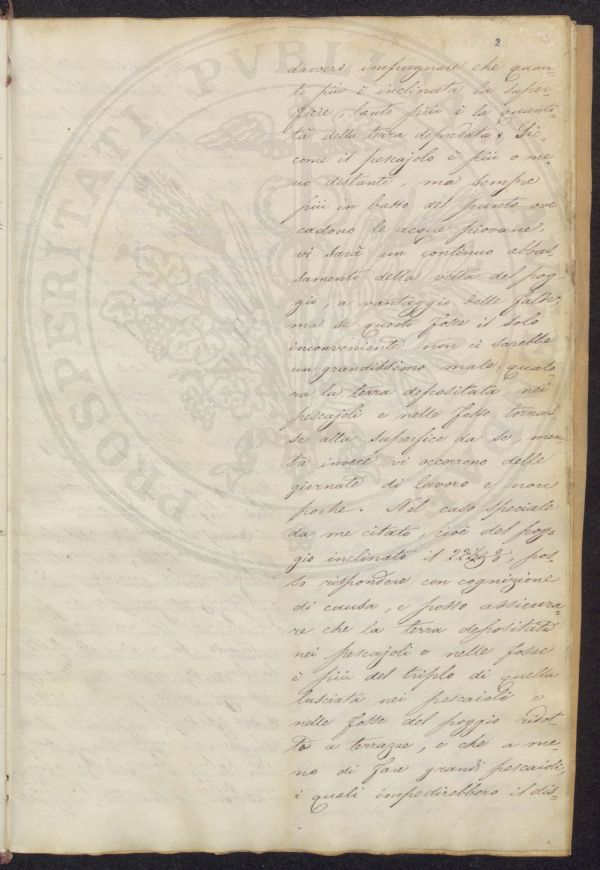 2
davvero impugnare che quan-
to più è inclinata la super-
ficie, tanto più è la quanti-
tà della terra depredata. Sic-
come il pescajolo è più o me-
no distante, ma sempre
più in basso del punto ove
cadono le acque piovane,
vi sarà un continuo abbas-
samento della vetta del pog-
gio, a vantaggio delle falde,
ma se questo fosse il solo
inconveniente non ci sarebbe
un grandissimo male, qualo-
ra la terra depositata nei
pescajoli e nelle fosse tornas-
se alla superfice da se, men-
tre invece vi occorrono delle
giornate di lavoro e non
poche. Nel caso speciale
da me citato, cioè del pog-
gio inclinato il 22 % pos-
so rispondere con cognizione
di causa, e posso assicura-
re che la terra depositata
nei pescajoli e nelle fosse
è più del triplo di quella
lasciata nei pescaioli e
nelle fosse del poggio ridot-
to a terrazze, e che a me-
no di fare grandi pescaioli,
i quali impedirebbero il dis-
PROSPERITATI PUBLICAE